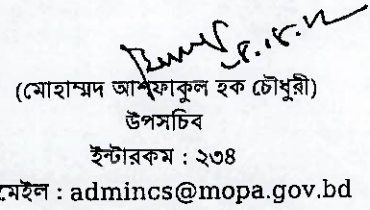 (মোহাম্মদ আশফাকুল হক চৌধুরী)
উপসচিব
ইন্টারকম : ২৩৪
মেইল : admincs@mopa.gov.bd